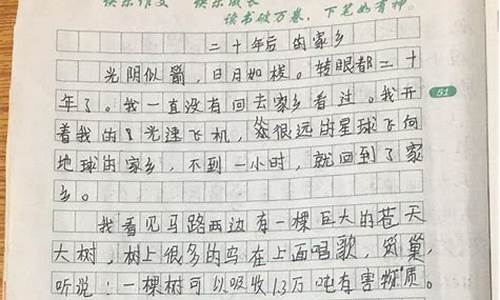 快乐作文 快乐成长
读书破万卷，下笔如有神。
二十年后的家乡
光阴似箭，日月如梭。转眼都二十
年了。我一直没有回去家乡看过。我开
51
着我的光速飞机，从很远的星球飞向
地球的家乡，不到一小时，就回到了家
乡。
我看见马路两边有一棵巨大的苍天
大树，树上很多的鸟在上面唱歌，筑巢，
听说：一棵树可以吸收13万吨有害物质。